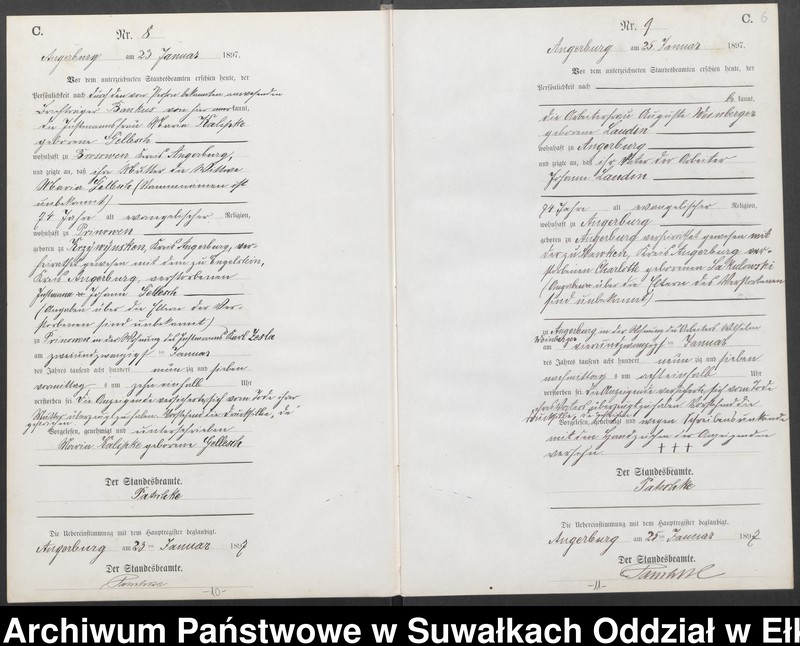 C.
Nr. 8
Angerburg am 23 Januar 1897.
Vor dem unterzeichneten Standesbeamten erschien heute, der
Persönlichkeit nach durch den von Person bekannten anwesenden
Briefträger kannt,
die Instmannsfrau Maria Kalipke
geborene Gellesch
wohnhaft zu Brosowen Kreis Angerburg,
und zeigte an, daß ihre Mutter die Wittwe
Maria Gellesch (Stammnamen ist
unbekannt)
74 Jahre alt evangelischer Religion,
wohnhaft zu Prinowen
geboren zu Krzywinsken, Kreis Angerburg, ver-
heirathet gewesen mit dem zu Engelstein,
Kreis Angerburg, verstorbenen
Instmann Johann Gellesch
(Angaben über die Eltern der Ver-
storbenen sind unbekannt)
zu Prinowen in der Wohnung des Instmanns Karl
am zweiundzwanzigsten Januar
des Jahres tausend acht hundert neunzig und sieben
vormittag s um zehneinhalb Uhr
verstorben sei. Die Anzeigende versicherte, sich vom Tode ihrer
Mutter überzeugt zu haben. Vorstehend die Drucksilbe, „be“
gestrichen.
Vorgelesen, genehmigt und unterschrieben
Maria Kalipke geborene Gellesch
Der Standesbeamte.
Patschke
Die Uebereinstimmung mit dem Hauptregister beglaubigt.
Angerburg am 23 ten Januar 1897
Der Standesbeamte.
-10-
C. 6
Nr. 9
Angerburg am 25 Januar 1897.
Vor dem unterzeichneten Standesbeamten erschien heute, der
Persönlichkeit nach
be kannt,
die Arbeiterfrau Auguste Weinberger
geborene Laudin
wohnhaft zu Angerburg
und zeigte an, daß ihr Vater der Arbeiter
Johann Laudin
74 Jahre alt evangelischer Religion,
wohnhaft zu Angerburg
geboren zu Angerburg verheirathet gewesen mit
der zu Kreis Angerburg ver-
storbenen Charlotte geborenen Sakulowski
(Angaben über die Eltern des Verstorbenen
sind unbekannt)
zu Angerburg in der Wohnung des Arbeiters Wilhelm
Weinberger
am vierundzwanzigsten Januar
des Jahres tausend acht hundert neunzig und sieben
nachmittag s um achteinhalb Uhr
verstorben sei. Die Anzeigende versicherte, sich vom Tode
ihres Vaters überzeugt zu haben. Vorstehend die
Drucksilbe,
Vorgelesen, genehmigt und wegen Schreibensunkunde
mit dem Handzeichen der Anzeigenden
versehn. † † †
Der Standesbeamte.
Patschke
Die Uebereinstimmung mit dem Hauptregister beglaubigt.
Angerburg am 25 ten Januar 1897
Der Standesbeamte.
-11-
Archiwum Państwowe w Suwałkach Oddział w Ełk